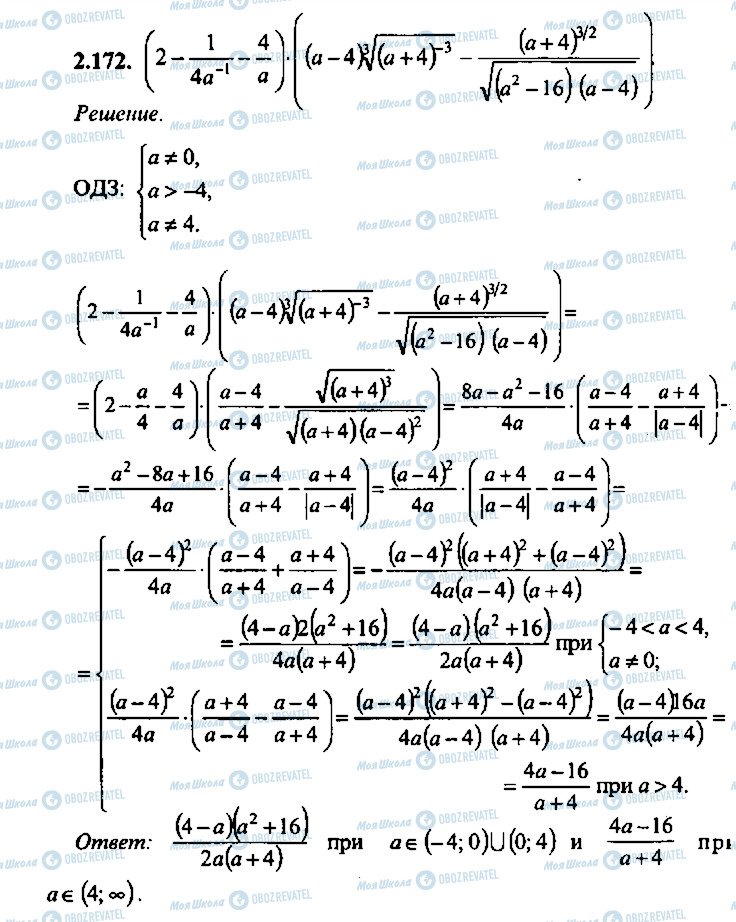 2.172. (2 − 1/(4a⁻¹) − 4/a) · ((a − 4)∛((a + 4)⁻³) − (a + 4)^(3/2)/√((a² − 16) (a − 4)))
Решение.
ОДЗ: { a ≠ 0,
a > −4,
a ≠ 4.
(2 − 1/(4a⁻¹) − 4/a) · ((a − 4)∛((a + 4)⁻³) − (a + 4)^(3/2)/√((a² − 16) (a − 4))) =
= (2 − a/4 − 4/a) · ((a − 4)/(a + 4) − √((a + 4)³)/√((a + 4)(a − 4)²)) = (8a − a² − 16)/(4a) · ((a − 4)/(a + 4) − (a + 4)/|a − 4|) =
= − (a² − 8a + 16)/(4a) · ((a − 4)/(a + 4) − (a + 4)/|a − 4|) = (a − 4)²/(4a) · ((a + 4)/|a − 4| − (a − 4)/(a + 4)) =
= { − (a − 4)²/(4a) · ((a − 4)/(a + 4) + (a + 4)/(a − 4)) = − (a − 4)²((a + 4)² + (a − 4)²)/(4a(a − 4) (a + 4)) =
= (4 − a)2(a² + 16)/(4a(a + 4)) = (4 − a)(a² + 16)/(2a(a + 4)) при { −4 < a < 4, a ≠ 0;
(a − 4)²/(4a) · ((a + 4)/(a − 4) − (a − 4)/(a + 4)) = (a − 4)²((a + 4)² − (a − 4)²)/(4a(a − 4) (a + 4)) = (a − 4)16a/(4a(a + 4)) =
= (4a − 16)/(a + 4) при a > 4.
Ответ: (4 − a)(a² + 16)/(2a(a + 4)) при a ∈ (−4; 0)∪(0; 4) и (4a − 16)/(a + 4) при
a ∈ (4; ∞).